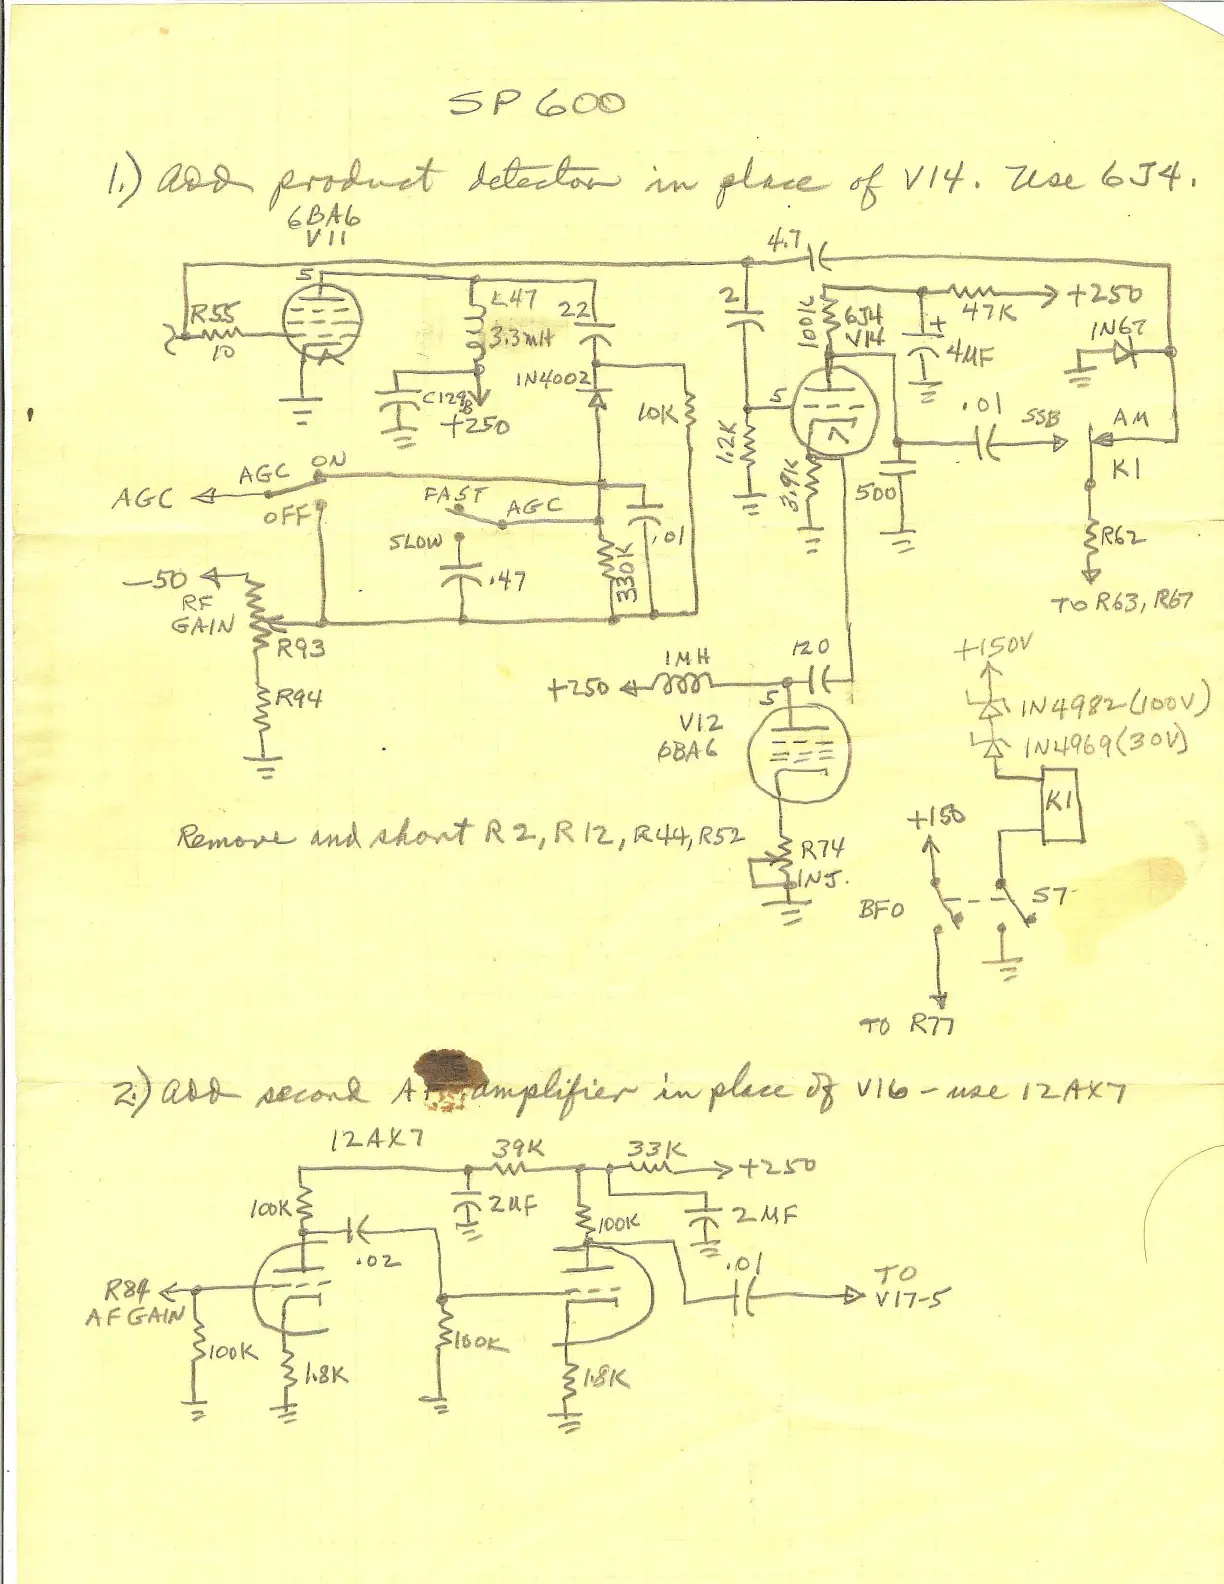 SP 600
1.) Add product detector in place of V14. Use 6J4.
6BA6
V11
4.7
5
R55
10
L47
3.3mH
22
C129B
+250
1N4002
10K
2
100K
6J4
V14
47K
+250
+
4MF
1N67
5
1.2K
3.9K
500
.01
SSB
AM
K1
R62
TO R63, R67
AGC
AGC
ON
OFF
FAST
AGC
SLOW
.47
.01
330K
-50
RF
GAIN
R93
R94
1MH
120
+250
5
V12
6BA6
+150V
1N4982 (100V)
1N4969 (30V)
K1
Remove and short R2, R12, R44, R52
R74
INJ.
+150
BFO
S7
TO R77
2.) Add second AF amplifier in place of V16 - use 12AX7
12AX7
39K
33K
+250
100K
2MF
100K
2MF
.02
.01
R84
AF GAIN
TO
V17-5
100K
1.8K
100K
1.8K